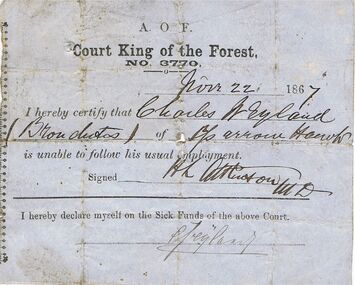 A. O. F.
Court King of the Forest,
NO. 3770.
Novr 22 1867
I hereby certify that Charles Weyland
(Bronchitis) of Sparrow Hawk
is unable to follow his usual employment.
Signed H L Atkinson MD
I hereby declare myself on the Sick Funds of the above Court.
C Weyland